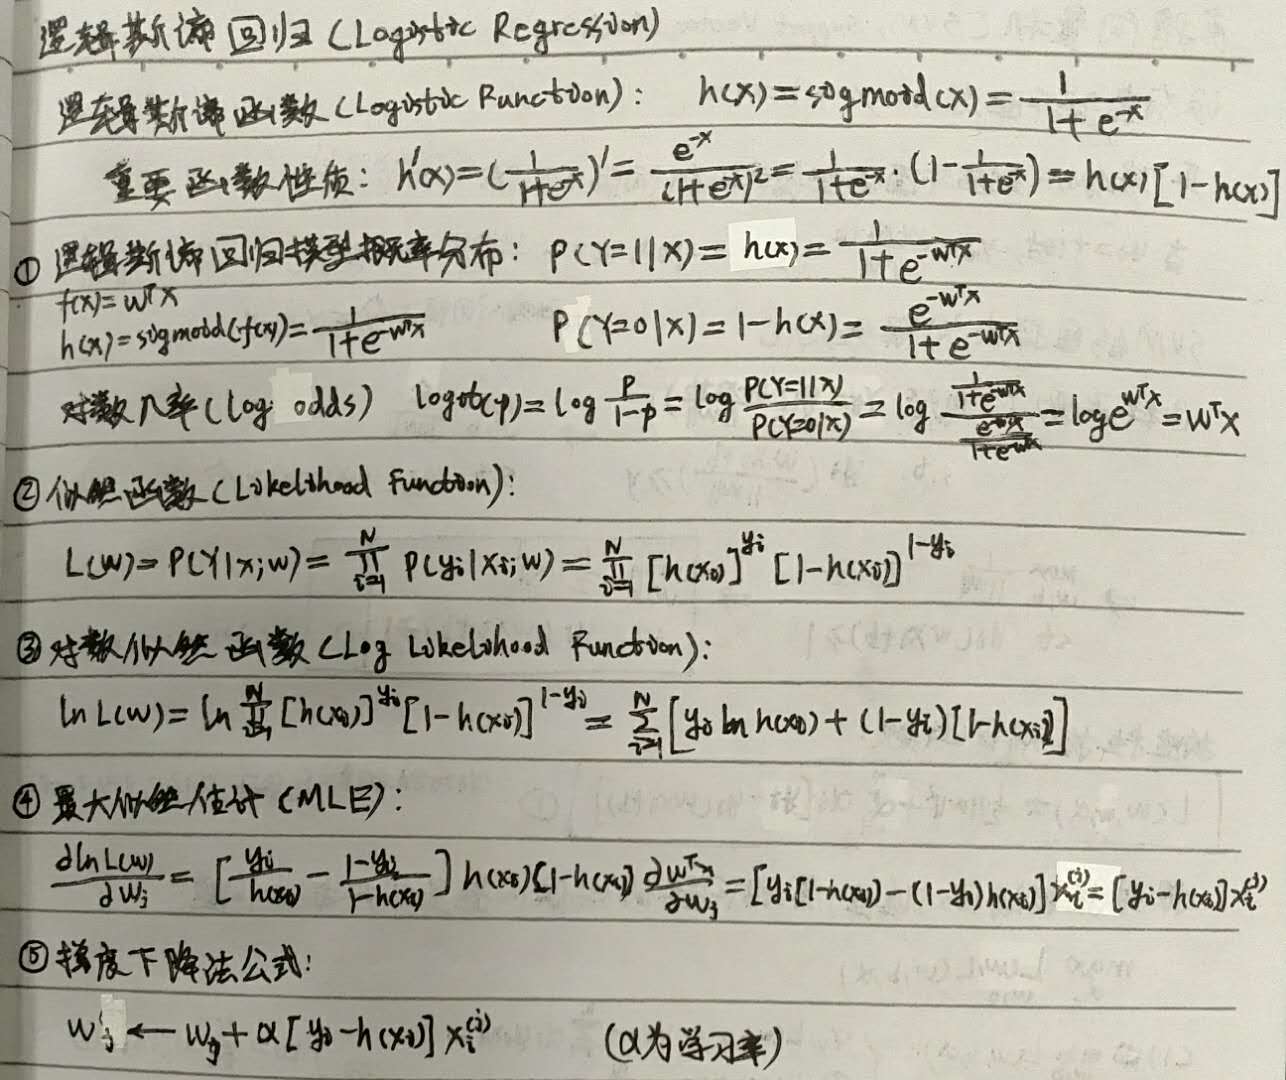 逻辑斯谛回归 (Logistic Regression)
逻辑斯谛函数 (Logistic Function): h(x) = sigmoid(x) = 1/(1+e^{-x})
重要函数性质: h'(x) = (1/(1+e^{-x}))' = e^{-x}/(1+e^{-x})^2 = 1/(1+e^{-x}) · (1 - 1/(1+e^{-x})) = h(x)[1-h(x)]
① 逻辑斯谛回归模型概率分布: P(Y=1|X) = h(x) = 1/(1+e^{-w^T x})
f(x) = w^T x
h(x) = sigmoid(f(x)) = 1/(1+e^{-w^T x}) P(Y=0|X) = 1-h(x) = e^{-w^T x}/(1+e^{-w^T x})
对数几率 (log odds) logit(p) = log p/(1-p) = log P(Y=1|x)/P(Y=0|x) = log (1/(1+e^{-w^T x}))/(e^{-w^T x}/(1+e^{-w^T x})) = log e^{w^T x} = w^T x
② 似然函数 (Likelihood Function):
L(w) = P(Y|x;w) = ∏_{i=1}^{N} P(y_i|x_i;w) = ∏_{i=1}^{N} [h(x_i)]^{y_i} [1-h(x_i)]^{1-y_i}
③ 对数似然函数 (Log Likelihood Function):
ln L(w) = ln ∏_{i=1}^{N} [h(x_i)]^{y_i} [1-h(x_i)]^{1-y_i} = ∑_{i=1}^{N} [y_i ln h(x_i) + (1-y_i)[1-h(x_i)]]
④ 最大似然估计 (MLE):
∂ln L(w)/∂w_j = [y_i/h(x_i) - (1-y_i)/(1-h(x_i))] h(x_i)[1-h(x_i)] ∂w^T x/∂w_j = [y_i[1-h(x_i)] - (1-y_i)h(x_i)] x_i^{(j)} = [y_i-h(x_i)] x_i^{(j)}
⑤ 梯度下降法公式:
w_j ← w_j + α[y_i-h(x_i)] x_i^{(j)} (α为学习率)